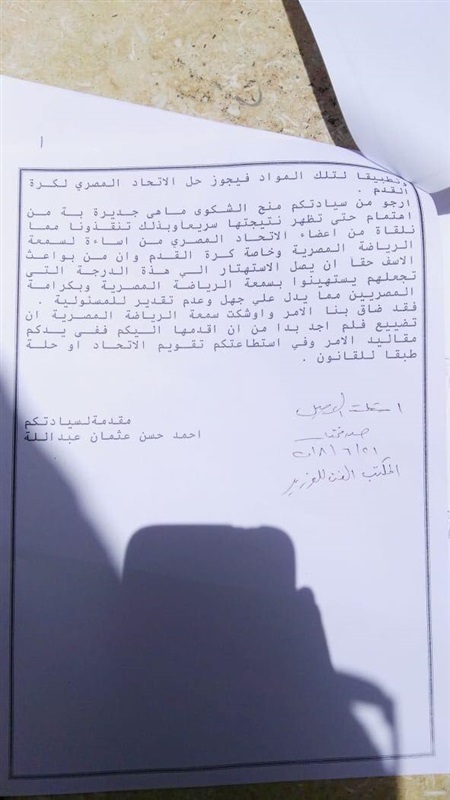 وتطبيقا لتلك المواد فيجوز حل الاتحاد المصري لكرة
القدم .
ارجو من سيادتكم منح الشكوى ماهى جديرة بة مـن
اهتمام حتى تظهر نتيجتها سريعاوبذلك تنقذونا ممـا
نلقاة من اعضاء الاتحاد المصري من اساءة لسمعة
الرياضة المصرية وخاصة كرة القدم وان من بواعـث
الاسف حقا ان يصل الاستهتار الي هذة الدرجة التـى
تجعلهم يستهينوا بسمعة الرياضة المصرية وبكرامـة
المصريين مما يدل علي جهل وعدم تقدير للمسئولية .
فقد ضاق بنا الامر واوشكت سمعة الرياضة المصرية ان
تضييع فلم اجد بدا من ان اقدمها اليكم ففى يـدكم
مقاليد الامر وفي استطاعتكم تقويم الاتحاد او حلـة
طبقا للقانون .
مقدمة لسيادتكم
احمد حسن عثمان عبداللة
استلمت
٢٠١٨/٦/٢١
المكتب الفنى للوزير